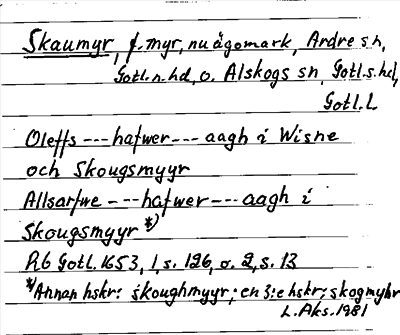 Skaumyr, f. myr, nu ägomark, Ardre sn,
Gotl.n.hd, o. Alskogs sn, Gotl.s.hd,
Gotl.L
Oleffs --- hafwer --- aagh i Wisne
och Skougsmyyr
Allsarfwe --- hafwer --- aagh i
Skougsmyyr *)
Rb Gotl. 1653, 1, s. 126, o. 2, s. 13
*) Annan hskr: skoughmyyr; en 3:e hskr; skogmyhr
L.Aks. 1981